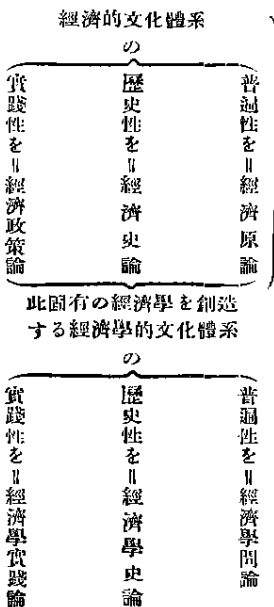 經濟的文化體系
の
普遍性を＝經濟原論
歷史性を＝經濟史論
實踐性を＝經濟政策論
此固有の經濟學を創造
する經濟學的文化體系
の
普遍性を＝經濟學問論
歷史性を＝經濟學史論
實踐性を＝經濟學實踐論